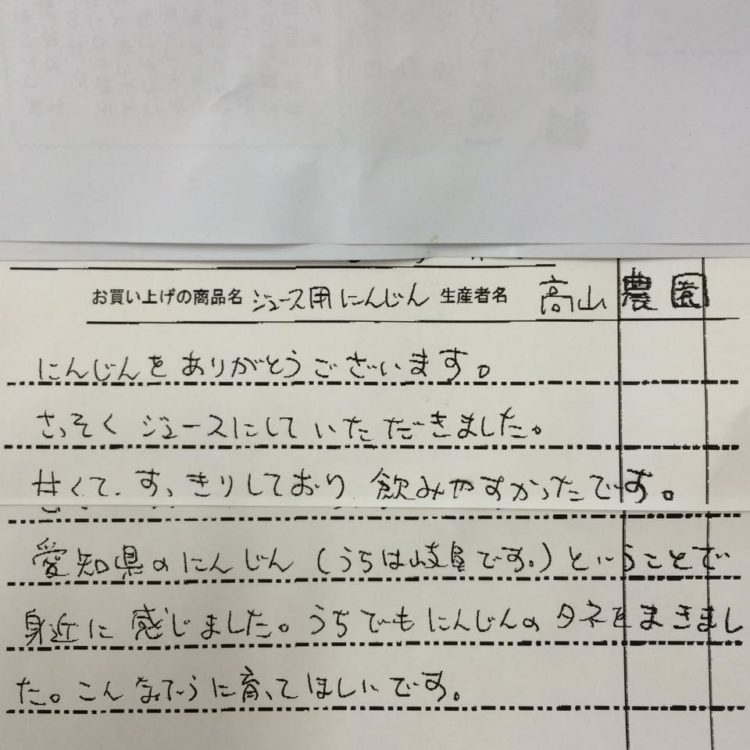 お買い上げの商品名 ジュース用にんじん 生産者名 高山農園
にんじんをありがとうございます。
さっそくジュースにしていただきました。
甘くて、すっきりしており、飲みやすかったです。
愛知県のにんじん(うちは岐阜です。)ということで
身近に感じました。うちでもにんじんのタネをまきまし
た。こんなふうに育ってほしいです。